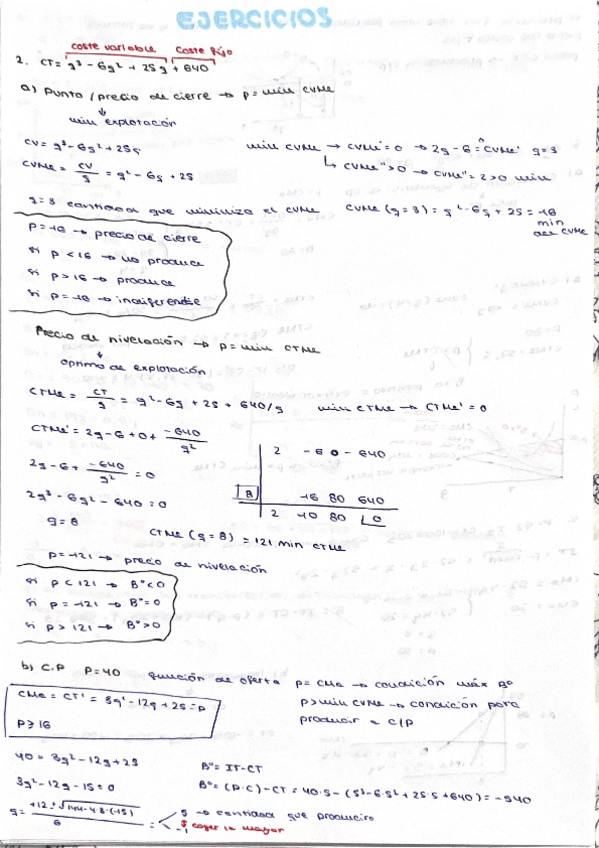 EJERCICIOS
coste variable coste fijo
2. CT = q³ - 6q² + 25q + 640
a) Punto / precio de cierre → p = min CVMe
min explotación
CV = q³ - 6q² + 25q
min CVMe → CVMe' = 0 → 2q - 6 = CVMe' q = 3
↳ CVMe'' > 0 → CVMe'' = 2 > 0 min
CVMe = CV/q = q² - 6q + 25
q = 3 cantidad que minimiza el CVMe
CVMe (q = 3) = q² - 6q + 25 = 16
min
del CVMe
P = 16 → precio de cierre
si P < 16 → no produce
si P > 16 → produce
si P = 16 → indiferente
Precio de nivelación → P = min CTMe
óptimo de explotación
CTMe = CT/q = q² - 6q + 25 + 640/q min CTMe → CTMe' = 0
CTMe' = 2q - 6 + 0 + -640/q²
2q - 6 + -640/q² = 0
2q³ - 6q² - 640 = 0
q = 8
2 -6 0 -640
8 16 80 640
2 10 80 0
CTMe (q = 8) = 121 min CTMe
P = 121 → precio de nivelación
si P < 121 → Bº < 0
si P = 121 → Bº = 0
si P > 121 → Bº > 0
b) C.P P = 40 función de oferta P = CMa → condición máx Bº
P > min CVMe → condición para
producir a c/p
CMa = CT' = 3q² - 12q + 25 = P
P ≥ 16
40 = 3q² - 12q + 25
3q² - 12q - 15 = 0
q = +12 ± √144 - 4·3·(-15) / 6 = 5 → cantidad que produciría
-1 coger la mayor
Bº = IT - CT
Bº = (P·C) - CT = 40·5 - (5³ - 6·5² + 25·5 + 640) = -540